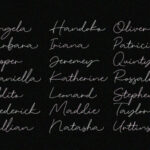 ngela Handoko Oliver
arbana Iriana Patrici
sper Jeremey Quinty
aniella Katherine Rossal
dito Leonard Stephe
ederick Maddie Taylor
llian Natasha